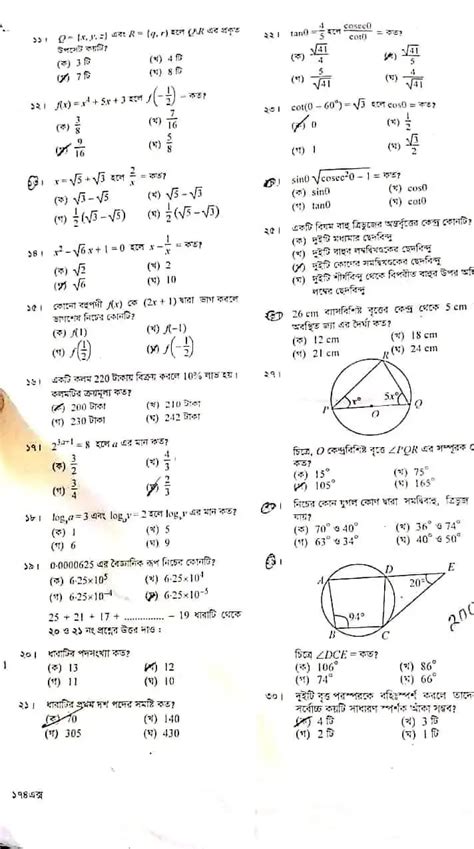 ১১। Q = {x, y, z} এবং R = {q, r} হলে Q∩R এর প্রকৃত
উপসেট কয়টি?
(ক) 3 টি (খ) 4 টি
(গ) 7 টি (ঘ) 8 টি
১২। f(x) = x⁴ + 5x + 3 হলে f(−1/2) = কত?
(ক) 3/8 (খ) 7/16
(গ) 9/16 (ঘ) 5/8
১৩। x = √5 + √3 হলে 2/x = কত?
(ক) √3 − √5 (খ) √5 − √3
(গ) 1/2(√3 − √5) (ঘ) 1/2(√5 − √3)
১৪। x² − √6 x + 1 = 0 হলে x − 1/x = কত?
(ক) √2 (খ) 2
(গ) √6 (ঘ) 10
১৫। কোনো বহুপদী f(x) কে (2x + 1) দ্বারা ভাগ করলে
ভাগশেষ নিচের কোনটি?
(ক) f(1) (খ) f(−1)
(গ) f(1/2) (ঘ) f(−1/2)
১৬। একটি কলম 220 টাকায় বিক্রয় করলে 10% লাভ হয়।
কলমটির ক্রয়মূল্য কত?
(ক) 200 টাকা (খ) 210 টাকা
(গ) 230 টাকা (ঘ) 242 টাকা
১৭। = 8 হলে a এর মান কত?
(ক) 3/2 (খ) 4/3
(গ) 3/4 (ঘ) 2/3
১৮। a = 3 এবং v = 2 হলে v এর মান কত?
(ক) 1 (খ) 5
(গ) 6 (ঘ) 9
১৯। 0·0000625 এর বৈজ্ঞানিক রূপ নিচের কোনটি?
(ক) 6·25×10⁵ (খ) 6·25×10⁴
(গ) 6·25×10⁻⁴ (ঘ) 6·25×10⁻⁵
25 + 21 + 17 + ............... − 19 ধারাটি থেকে
২০ ও ২১ নং প্রশ্নের উত্তর দাও :
২০। ধারাটির পদসংখ্যা কত?
(ক) 13 (খ) 12
(গ) 11 (ঘ) 10
২১। ধারাটির প্রথম দশ পদের সমষ্টি কত?
(ক) 70 (খ) 140
(গ) 305 (ঘ) 430
১৭৪এক্স
২২। tanθ = 4/5 হলে cosecθ/cotθ = কত?
(ক) √41/4 (খ) √41/5
(গ) 5/√41 (ঘ) 4/√41
২৩। cot(θ − 60°) = √3 হলে cosθ = কত?
(ক) 0 (খ) 1/2
(গ) 1 (ঘ) √3/2
২৪। sinθ √cosec²θ − 1 = কত?
(ক) sinθ (খ) cosθ
(গ) tanθ (ঘ) cotθ
২৫। একটি বিষম বাহু ত্রিভুজের অন্তর্বৃত্তের কেন্দ্র কোনটি?
(ক) দুইটি মধ্যমার ছেদবিন্দু
(খ) দুইটি বাহুর লম্বদ্বিখণ্ডকের ছেদবিন্দু
(গ) দুইটি কোণের সমদ্বিখণ্ডকের ছেদবিন্দু
(ঘ) দুইটি শীর্ষবিন্দু থেকে বিপরীত বাহুর উপর
লম্বের ছেদবিন্দু
26 cm ব্যাসবিশিষ্ট বৃত্তের কেন্দ্র থেকে 5 cm
অবস্থিত জ্যা এর দৈর্ঘ্য কত?
(ক) 12 cm (খ) 18 cm
(গ) 21 cm (ঘ) 24 cm
২৭।
R
x° 5x°
P O Q
চিত্রে, O কেন্দ্রবিশিষ্ট বৃত্তে ∠PQR এর সম্পূরক
কত?
(ক) 15° (খ) 75°
(গ) 105° (ঘ) 165°
নিচের কোন যুগল কোণ দ্বারা সমদ্বিবাহু, ত্রিভুজ
যায়?
(ক) 70° ও 40° (খ) 36° ও 74°
(গ) 63° ও 34° (ঘ) 40° ও 50°
A D E
20°
94°
B C
চিত্রে ∠DCE = কত?
(ক) 106° (খ) 86°
(গ) 74° (ঘ) 66°
৩০। দুইটি বৃত্ত পরস্পরকে বহিঃস্পর্শ করলে তাদের
সর্বোচ্চ কয়টি সাধারণ স্পর্শক আঁকা সম্ভব?
(ক) 4 টি (খ) 3 টি
(গ) 2 টি (ঘ) 1 টি